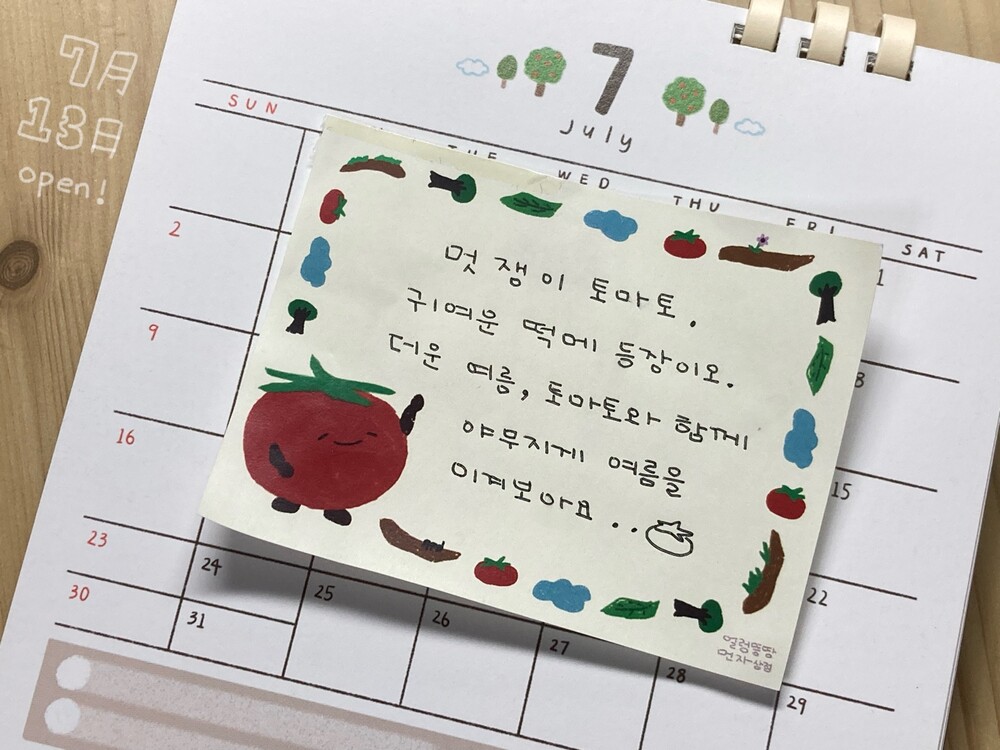 7月
13日
open!
7
July
SUN TUE WED THU FRI SAT
1
2
8
9
15
16
22
23 24 25 26 27 28 29
30 31
멋쟁이 토마토.
귀여운 떡메 등장이오.
더운 여름, 토마토와 함께
야무지게 여름을
이겨보아요..
얼렁뚱땅
먼지상점